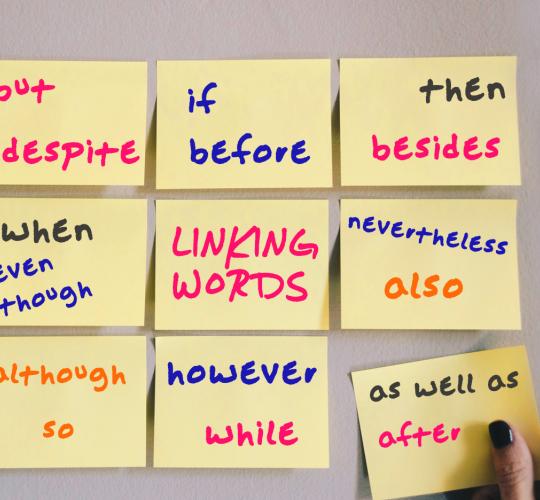 but
despite
if
before
then
besides
when
even
though
LINKING
WORDS
nevertheless
also
although
so
however
while
as well as
after